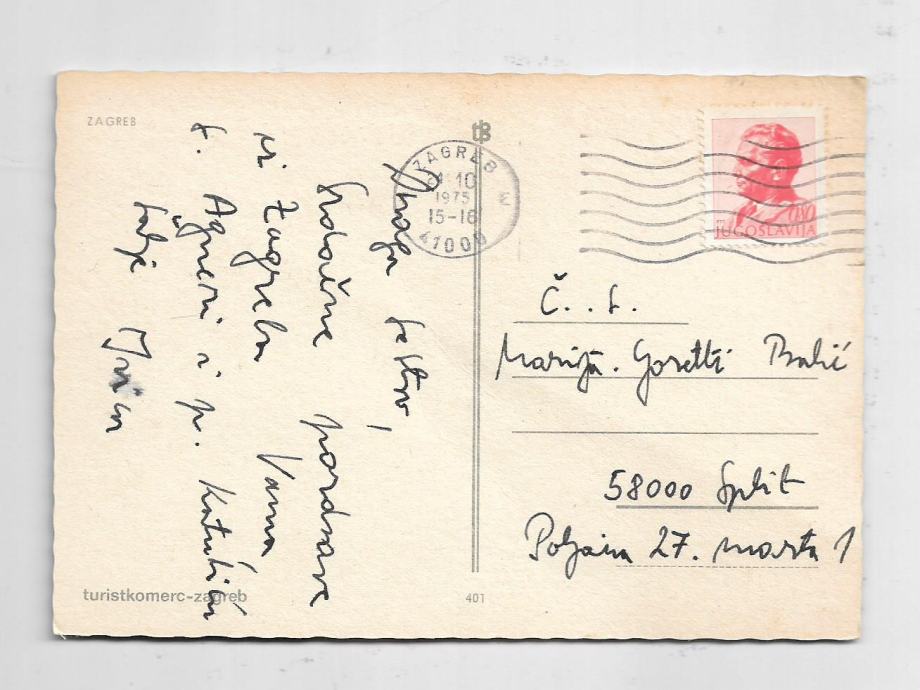 ZAGREB
Draga sestro,
Srdačne pozdrave
iz Zagreba Vama
s. Agnezi i p. Katušić
šalje
turistkomerc-zagreb
401
ZAGREB
10
1975
15-16
41000
0.80
JUGOSLAVIJA
Č. . s.
Marija. Goretti Balić
58000 Split
Poljana 27. marta 1